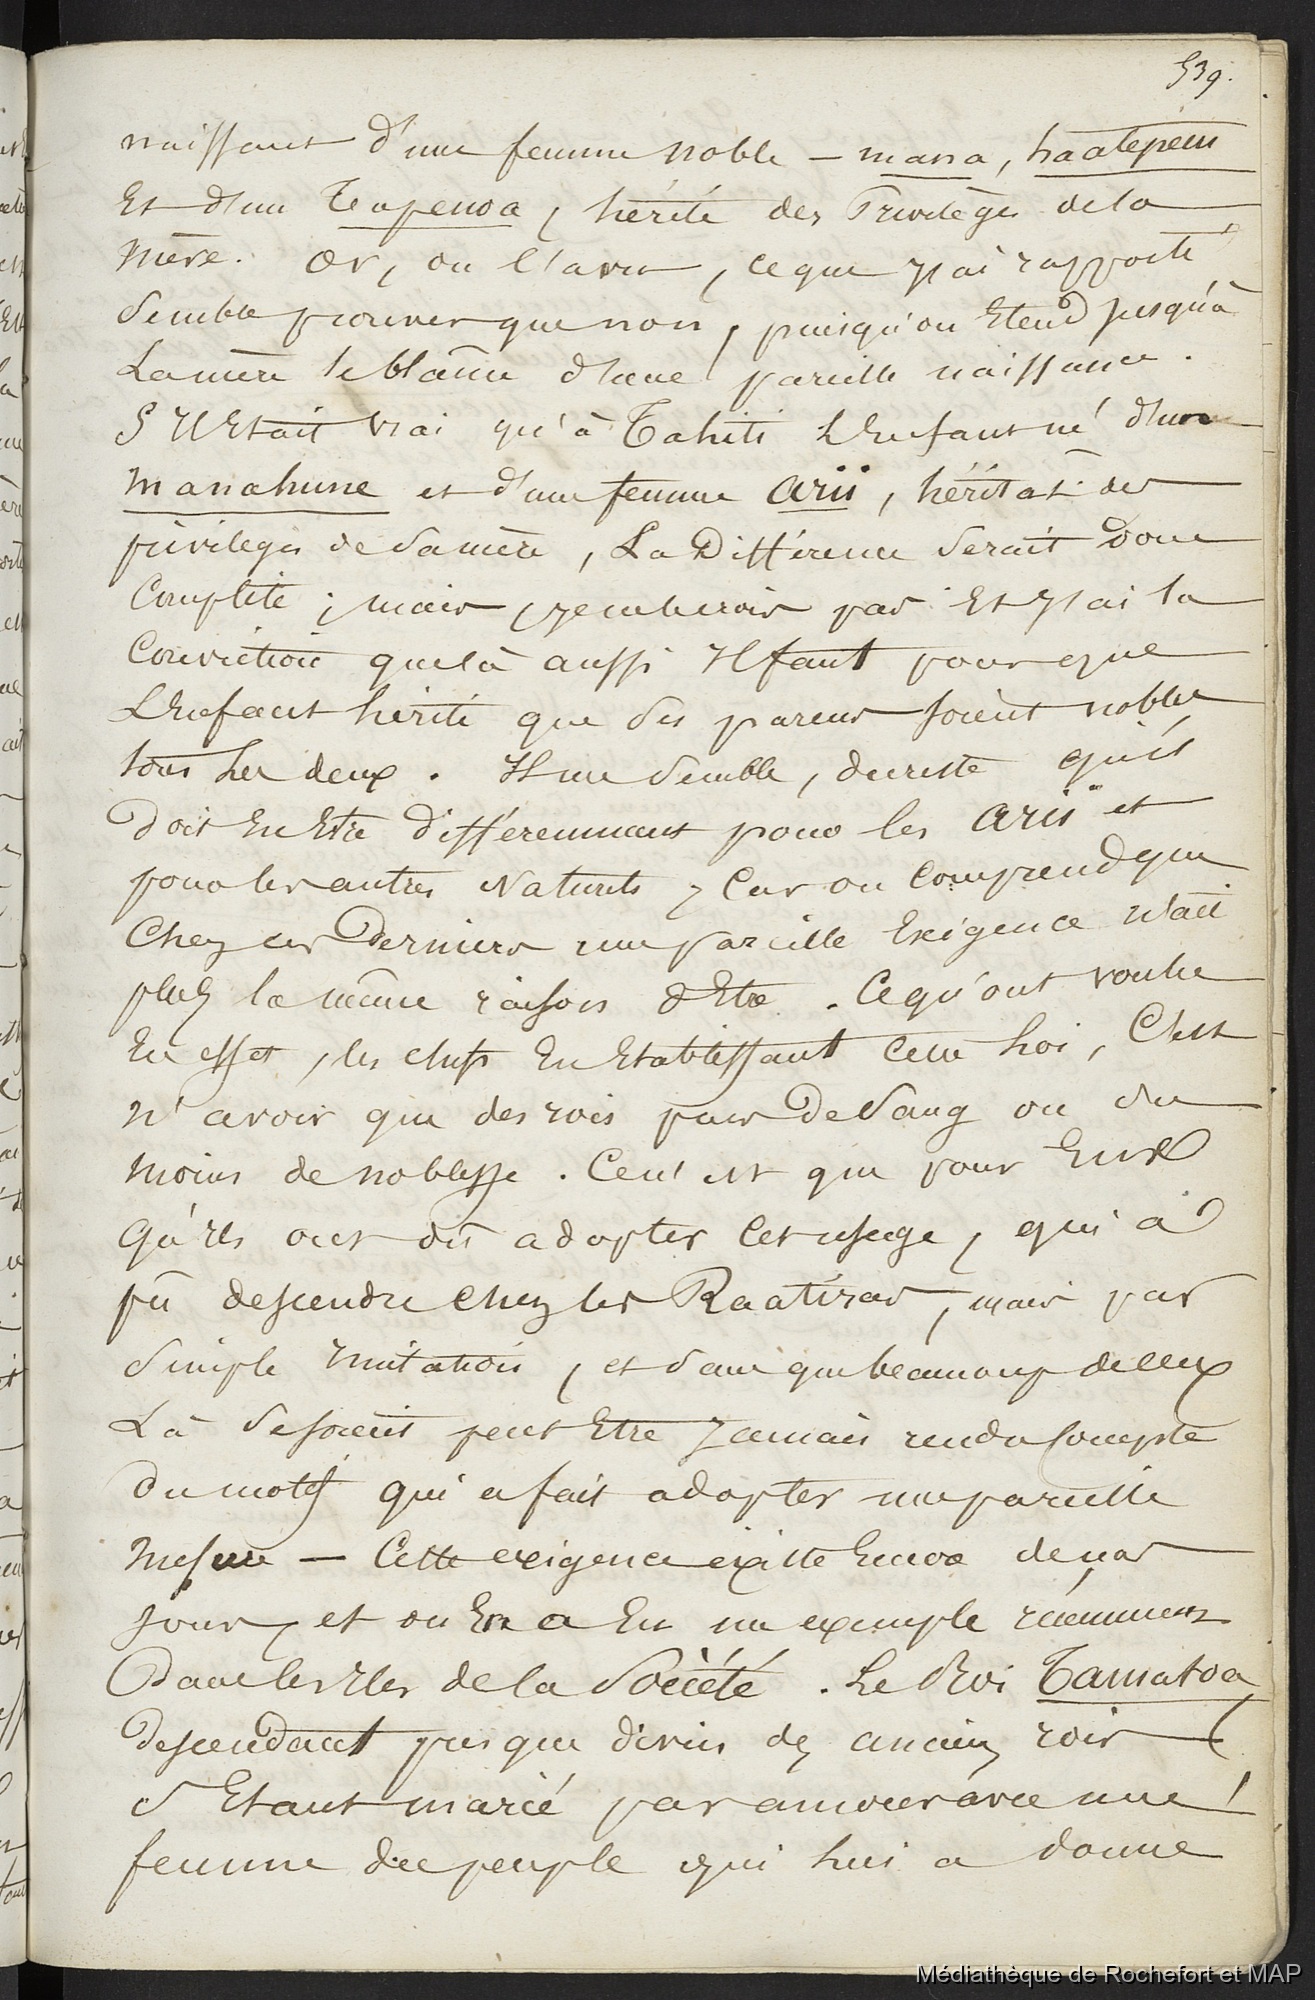 539.
naissant d'une femme noble — mana, haatepeiu
Et d'un Teapenoa, hérite des Privilèges de la
mère. Or, on l'a vu, ce que j'ai rapporté
Semble prouver que non, puisqu'on Etend jusqu'à
La mère le blâme d'une pareille naissance.
S'Il Etait vrai qu'à Tahiti L'Enfant né d'un
Manahune et d'une femme arii, héritât des
privilèges de Sa mère, La Différence Serait Donc
Complète ; mais, je ne le crois pas Et j'ai la
Conviction que là aussi Il faut pour que
L'Enfant hérite que Ses parens soient nobles
tous Les deux. Il me Semble, du reste qu'il
Doit En Etre différemment pour les arii et
pour les autres Naturels, Car on Comprend que
Chez ces Derniers une pareille Exigence n'ait
plus la même raison d'Etre. Ce qu'ont voulu
En effet, les chefs En Etablissant Cette Loi, C'est
n'avoir que des rois purs De Sang ou du
Moins de noblesse. Ce n'est que pour Eux
Qu'ils ont dû adopter Cet usage, qui a
pû descendre Chez les Raatiras, mais par
Simple Imitation, et Sans que beaucoup d'eux
Là Se soient peut Etre Jamais rendu Compte
Du motif qui a fait adopter une pareille
Mesure — Cette exigence existe Encore de nos
Jours, et on En a Eu un exemple récemment
Dans les Iles de la Société. Le Roi Tamatoa
Descendant presque divin des anciens rois
S'Etant marié par amour avec une
femme du peuple qui lui a donné
Médiathèque de Rochefort et MAP